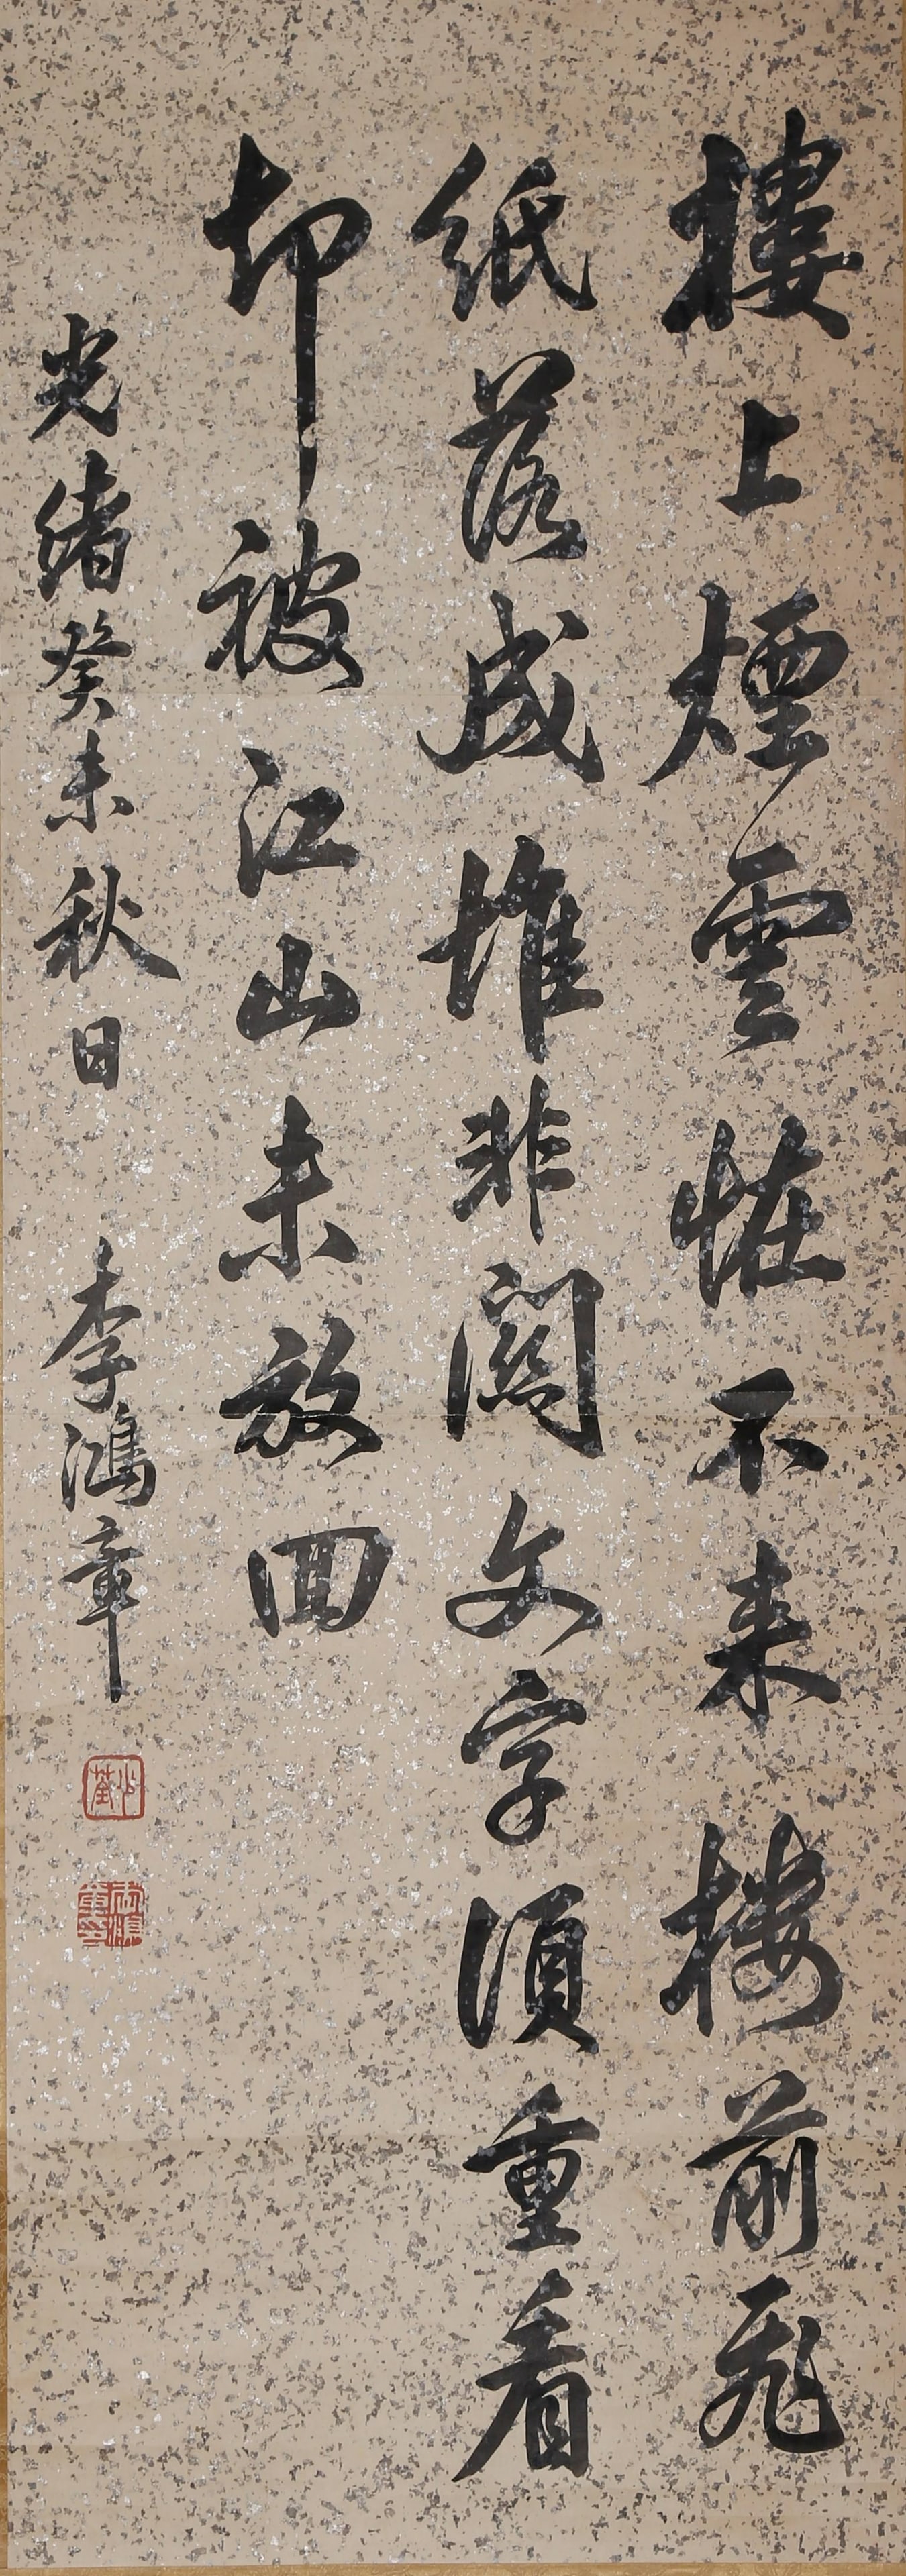 樓上煙雲恠不来樓前飛
紙落成堆非關文字須重看
却被江山未放回
光緒癸未秋日 李鴻章
少荃